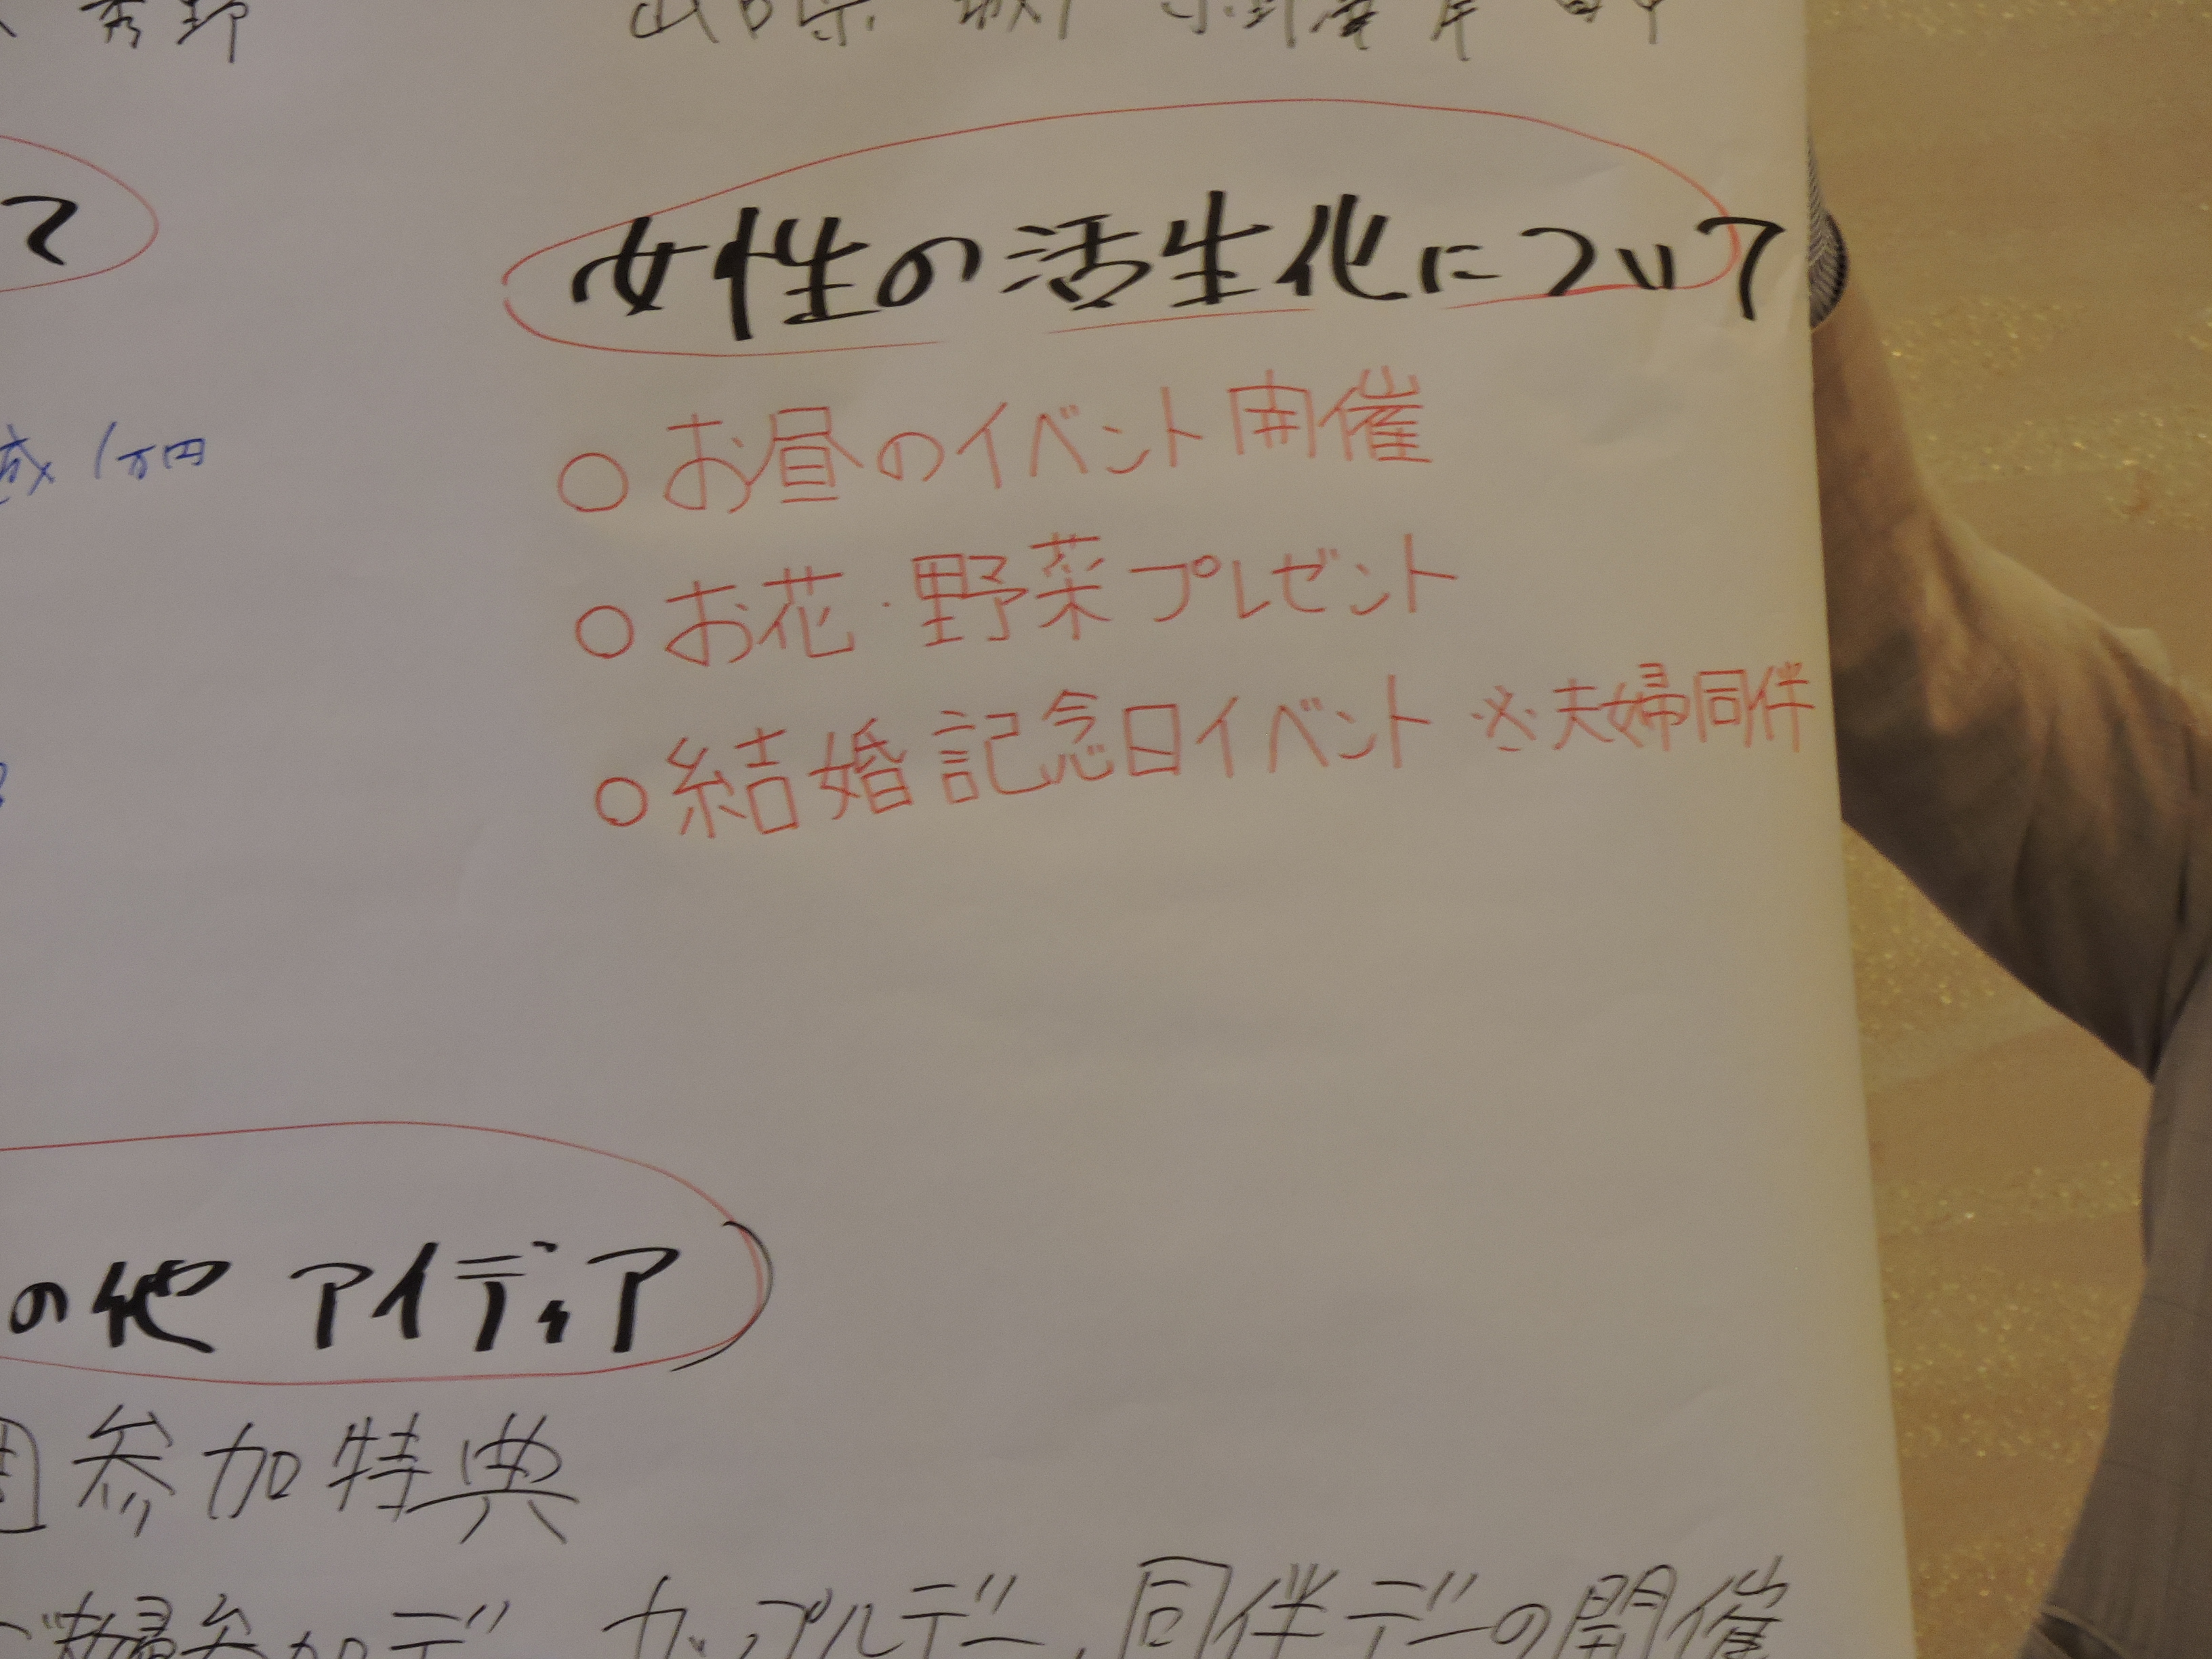 秀野
て
女性の活生化について
1万円
○ お昼のイベント開催
○ お花・野菜プレゼント
○ 結婚記念日イベント ※夫婦同伴
の他 アイディア
参加特典
婦参加デー カップルデー、同伴デーの開催